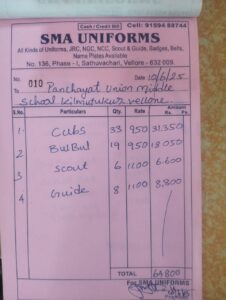 Cash / Credit Bill Cell: 91594 88744
SMA UNIFORMS
All Kinds of Uniforms, JRC, NGC, NCC, Scout & Guide, Badges, Belts,
Name Plates Available
No. 136, Phase - I, Sathuvachari, Vellore - 632 009.
No. 010 Date 10/6/25
To Panchayat Union middle
school
vellore
S.No. Particulars Qty. Rate Amount
Rs.
1 Cubs 33 950 31,350
2 BulBul 19 950 18,050
3 scout 6 1100 6.600
4 Guide 8 1100 8,800
TOTAL 64800
For SMA UNIFORMS